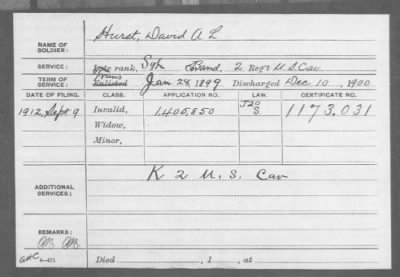 NAME OF SOLDIER: Hurst, David A L
SERVICE: Late rank, Sgt Band, 2 Reg't U.S. Cav.
TERM OF SERVICE: Enlisted Jan 28, 1899 Discharged Dec 10, 1900
DATE OF FILING. CLASS. APPLICATION NO. LAW. CERTIFICATE NO.
1912, Sept 9 Invalid, 1,405,850 S. 1173.031
Widow,
Minor,
ADDITIONAL SERVICES: K 2 U.S. Cav
REMARKS:
Died , 1 , at